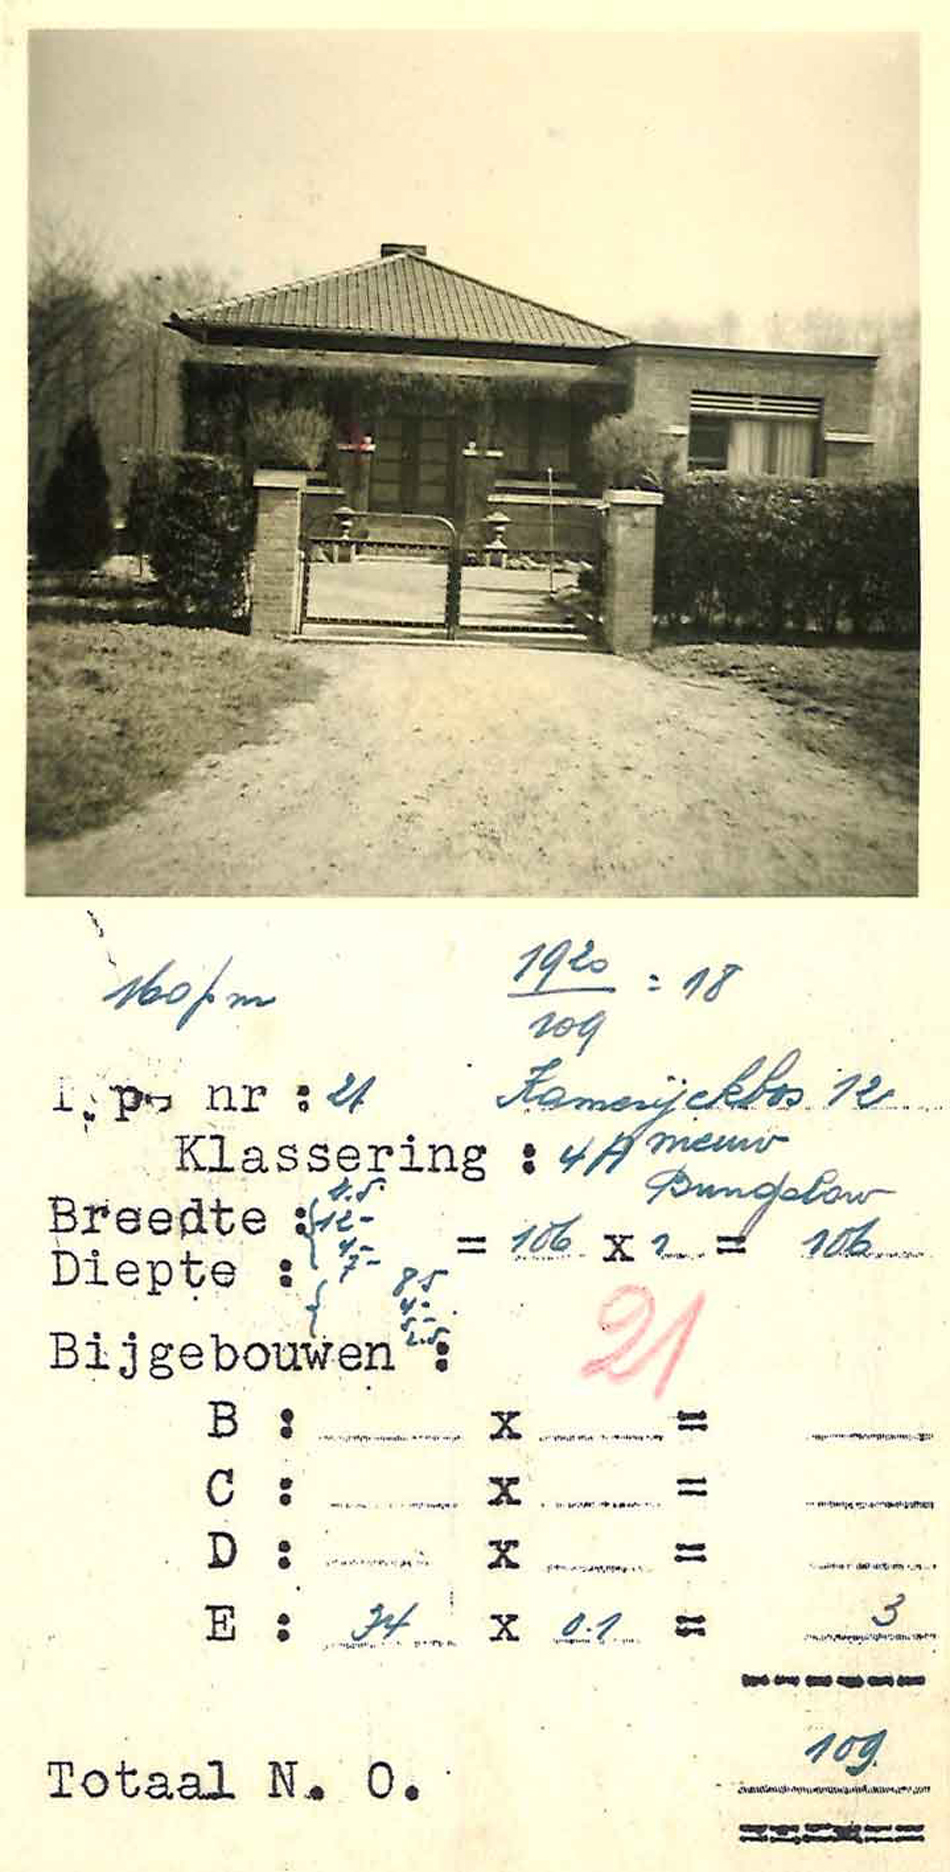 160 p m
1920 : 18
109
I. p. nr : 21 Kamerijckbos 12
Klassering : 4A nieuw
Bungalow
Breedte : 12-
= 106 x 1 = 106
Diepte : 7-
8.5
4-
Bijgebouwen :
21
B : x =
C : x =
D : x =
E : 34 x 0.1 = 3
109
Totaal N. O.